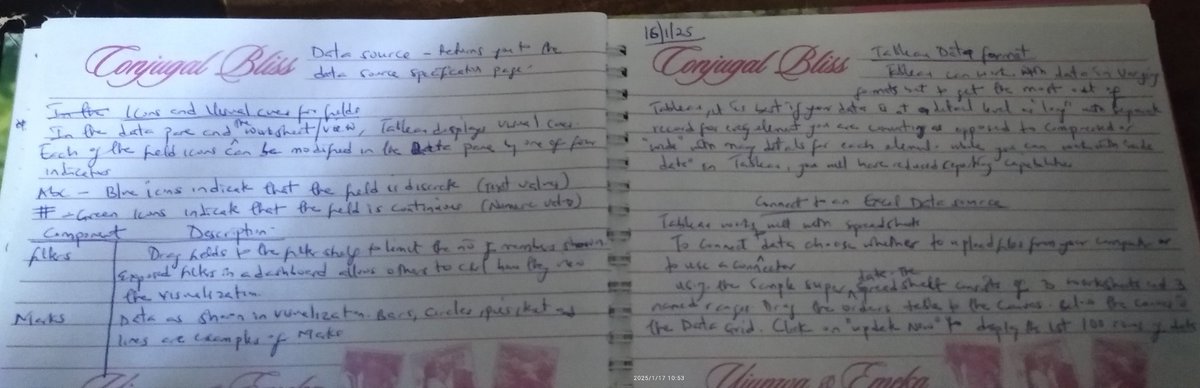 Conjugal Bliss
Data source - Returns you to the
data source specification page.
In the Icons and Visual cues for fields
* In the data pane and the worksheet/view, Tableau displays visual cues.
Each of the field icons can be modified in the Data pane by one of four
indicators
Abc - Blue icons indicate that the field is discrete (Text values)
# - Green Icons indicate that the field is continuous (Numeric values)
Component Description
filters Drag fields to the filter shelf to limit the no of members shown
Exposed filters in a dashboard allows others to ctrl how they view
the visualization.
Marks Data as shown in visualization. Bars, Circles, pies and
lines are examples of Marks
16/1/25
Conjugal Bliss
Tableau Data format
Tableau can work with data in varying
formats but to get the most out of
Tableau, it is best if your data is at a detail level or "long" with separate
record for each element you are counting as opposed to compressed or
"wide" with totals for each element. While you can work with "wide
data" in Tableau, you will have reduced reporting capabilities
Connect to an Excel Data source
Tableau works well with spreadsheets
To connect data choose whether to upload files from your computer or
to use a connector
using the sample super date. The
spreadsheet consists of 3 worksheets and 3
named ranges. Drag the orders table to the Canvas. Below the canvas is
the Data Grid. Click on "update Now" to display the 1st 100 rows of data
2025/1/17 10:53